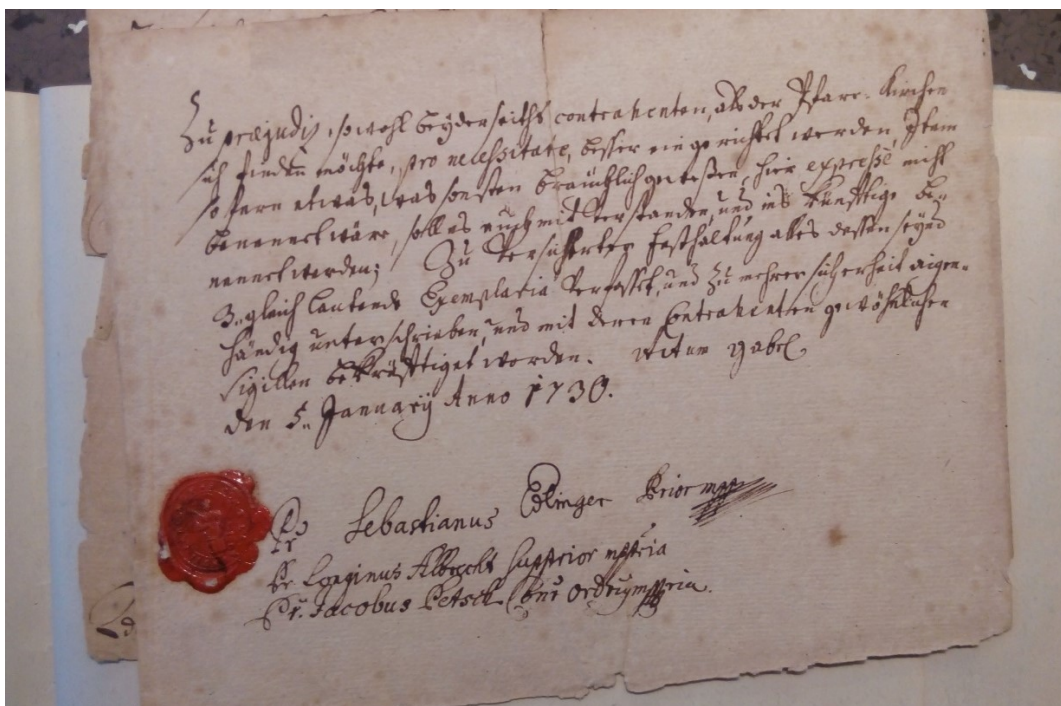 Zu præjudiz, sowohl beyderseiths contrahenten, als der Pfarr-Kirchen
sich finden möchte, pro necessitate, besser eingerichtet werden, Item
sofern etwas, was sonsten bräuchlich gewesen, hier expresse nicht
benennet wäre, soll es auch mit verstanden, und ins künfftige be„
nennet werden; Zu versicherter festhaltung alles dessen seynd
3„ gleich lautende Exemplaria verfasset, und zu mehrer sicherheit aigen„
händig unterschrieben, und mit denen Contrahenten gewöhnlichen
Sigillen bekräfftiget worden. Actum Gabel
den 5„ January Anno 1730.
Fr Sebastianus Edlinger Prior mpp
Fr Longinus Albrecht Supprior mppria
Fr. Jacobus Petsch